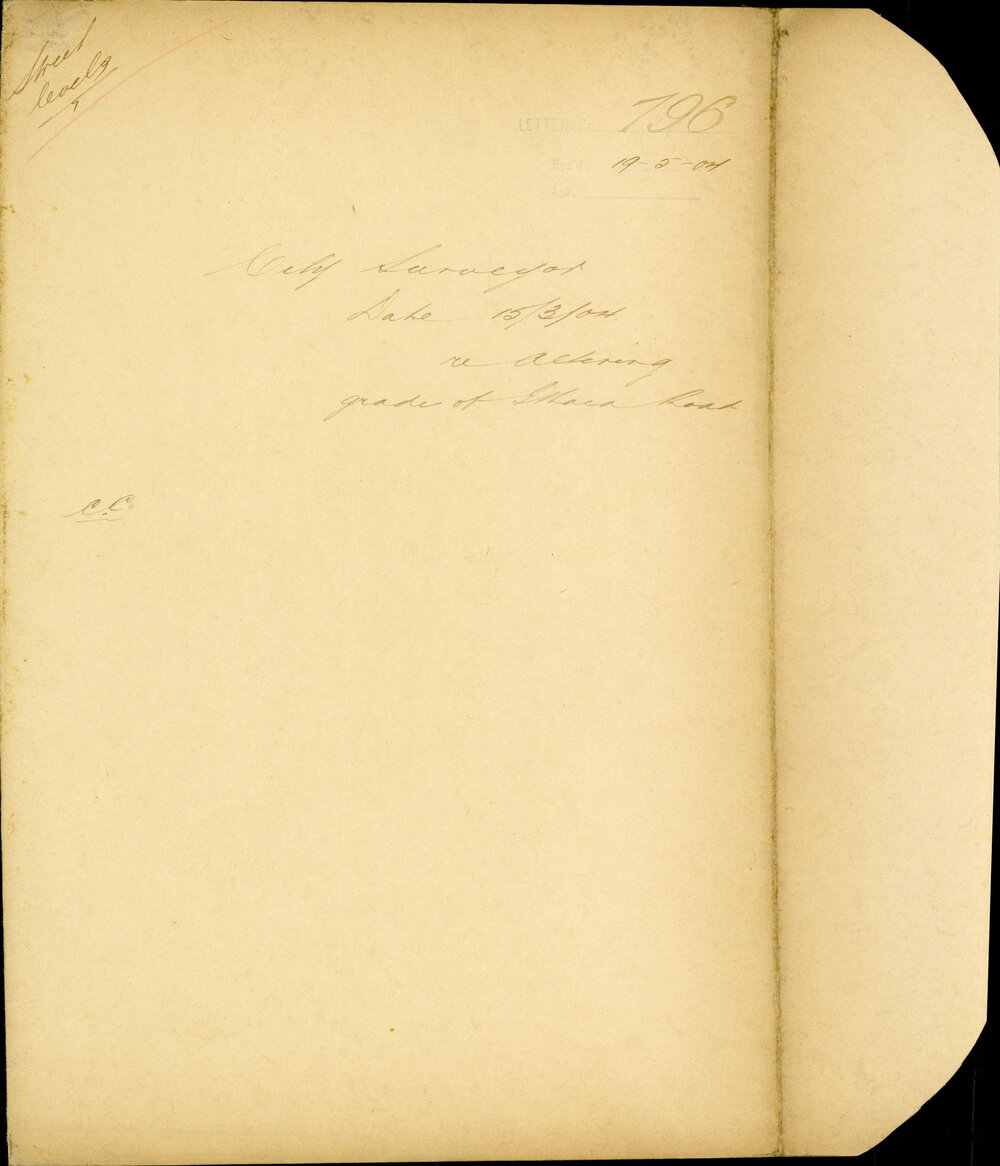 Street
levels
LETTER No. 796
Rec'd 19-5-04
Ack.
City Surveyor
Date 15/3/04
re Altering
grade of Ithaca Road
C.C.